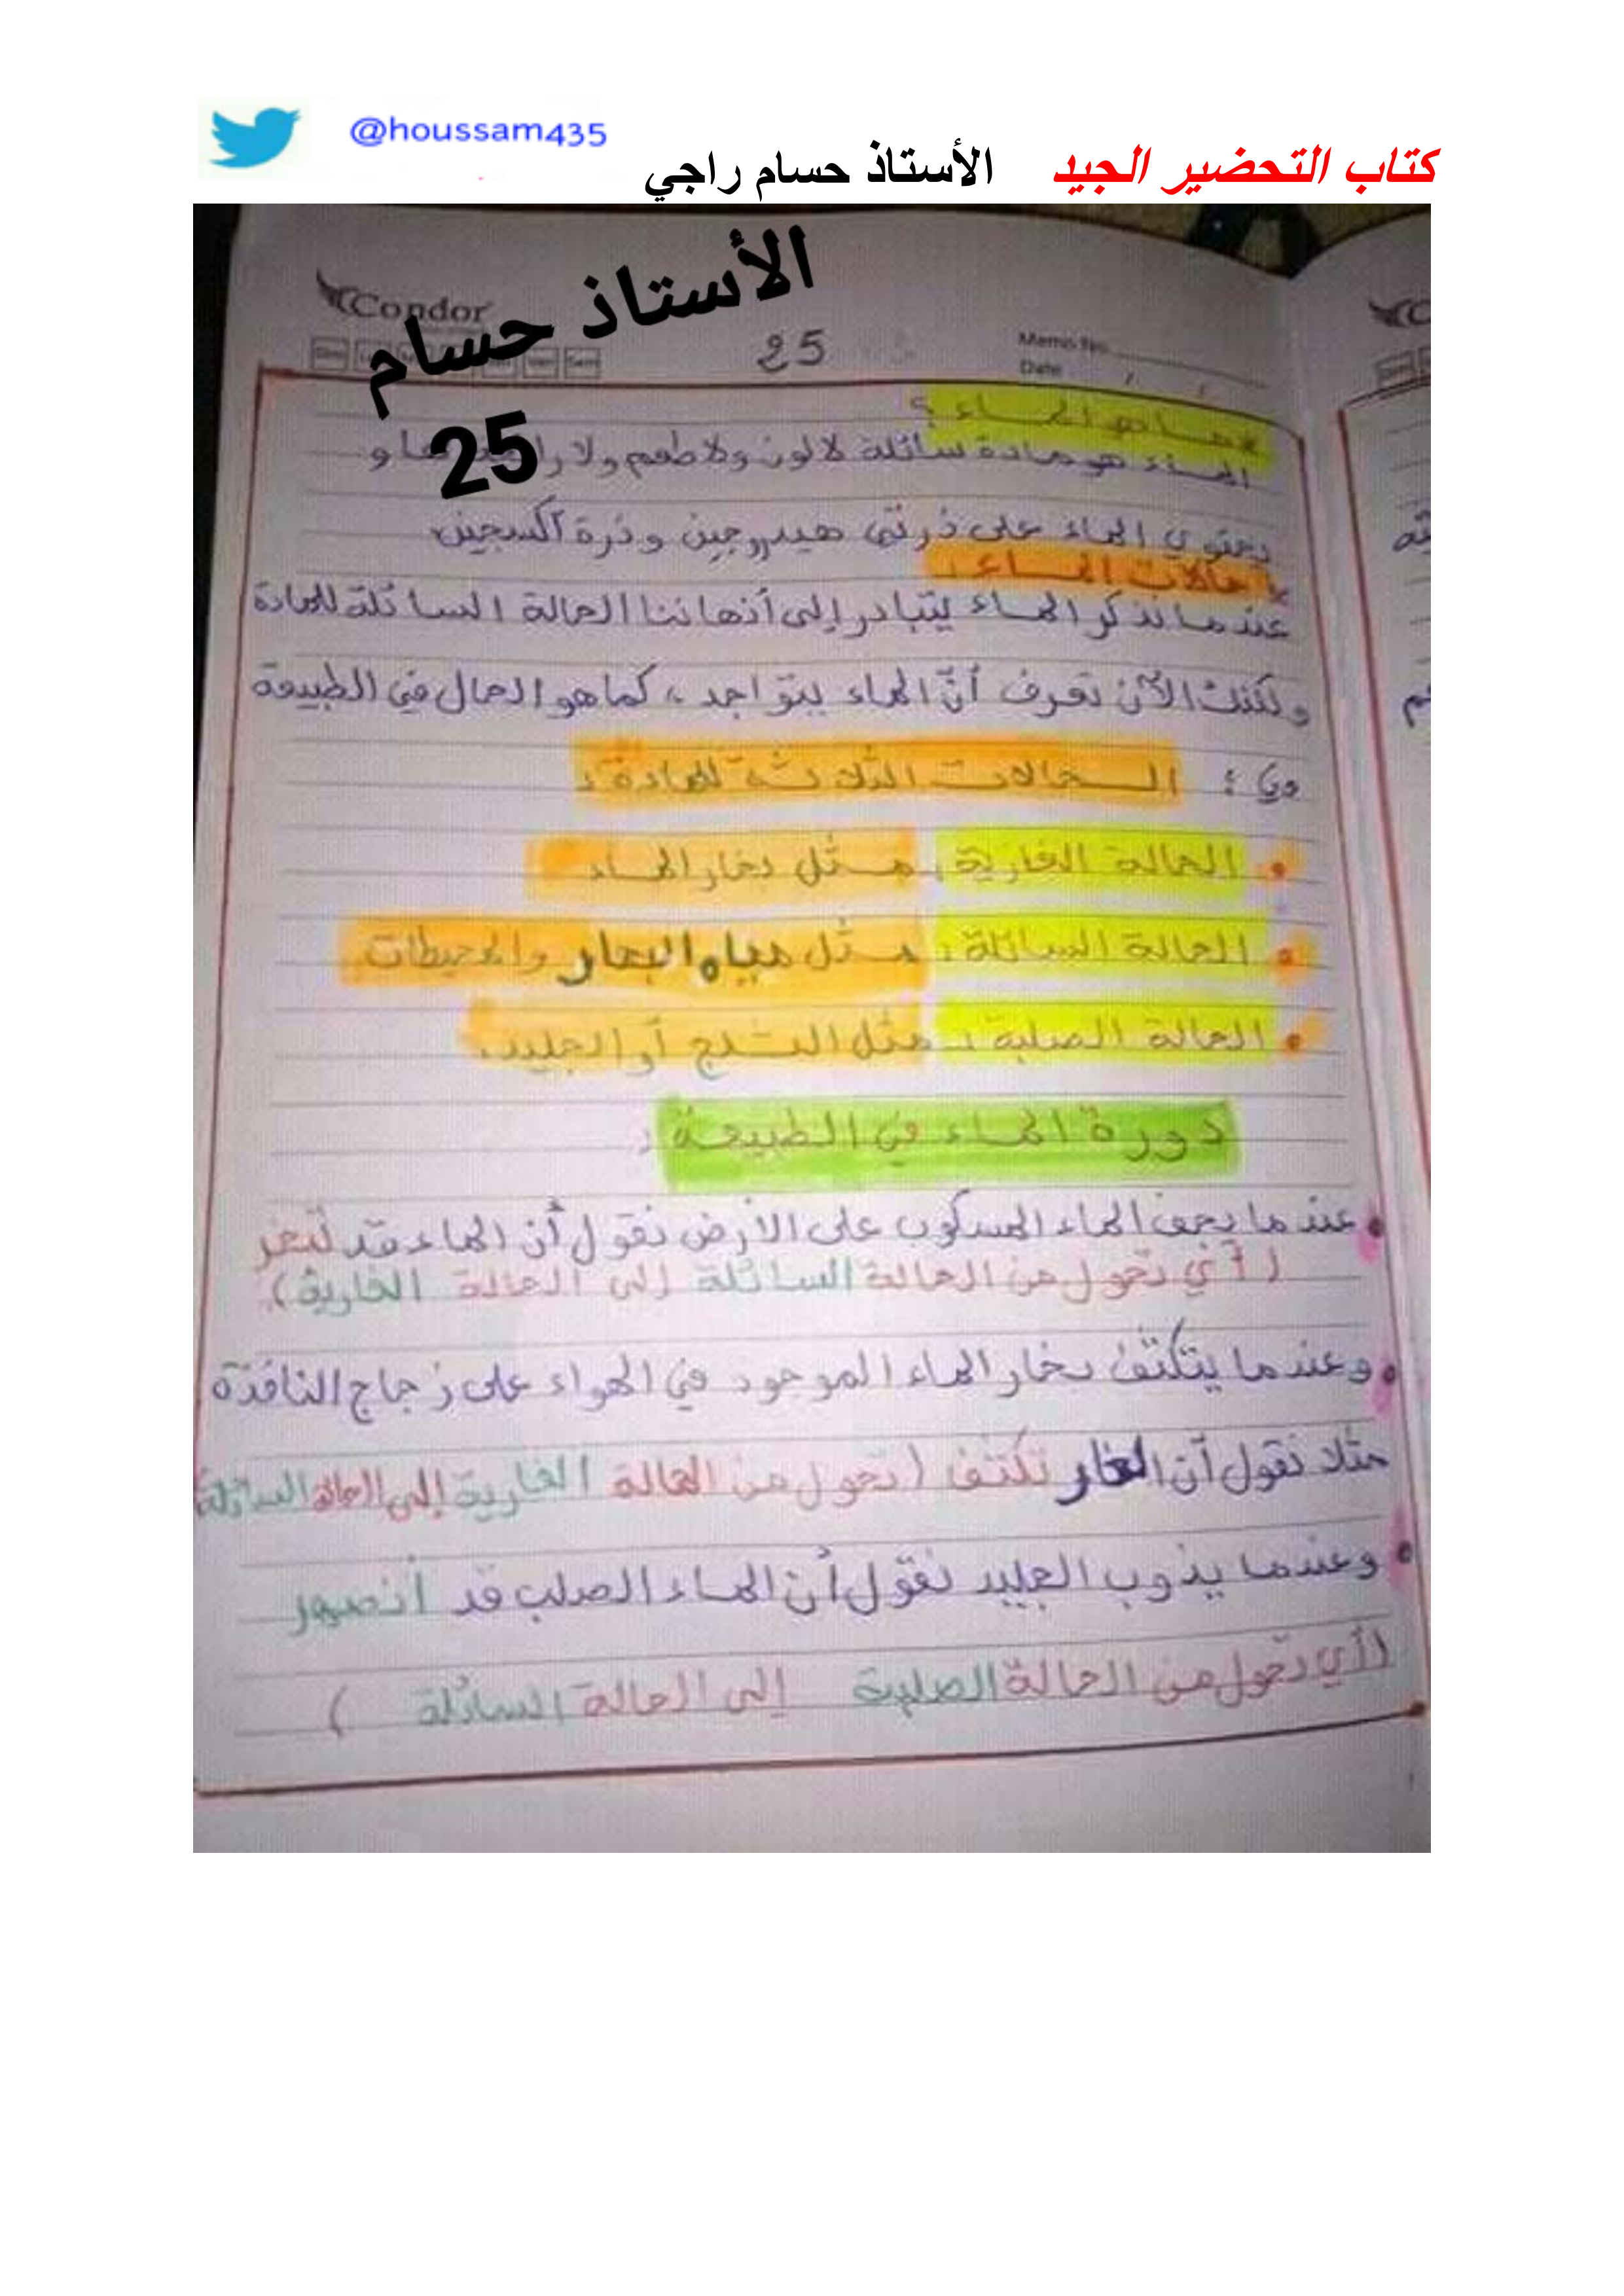 @houssam435
كتاب التحضير الجيد الأستاذ حسام راجي
الأستاذ حسام
25
Condor
25
Memo No.
Date / /
* ما هو الماء ؟
الماء هو مادة سائلة لا لون ولا طعم ولا و
يحتوي الماء على ذرتي هيدروجين وذرة أكسجين
* حالات الماء :
عندما نذكر الماء يتبادر إلى أذهاننا الحالة السائلة للمادة
ولكنك الآن تعرف أنّ الماء يتواجد، كما هو الحال في الطبيعة
وفي : الحالات الثلاثة للمادة :
• الحالة الغازية : مثل بخار الماء
• الحالة السائلة : مثل مياه البحار والمحيطات
• الحالة الصلبة : مثل الثلج أو الجليد.
دورة الماء في الطبيعة :
• عندما يجف الماء المسكوب على الأرض نقول أن الماء قد تبخر
( أي تحول من الحالة السائلة إلى الحالة الغازية ).
• وعندما يتكثف بخار الماء الموجود في الهواء على زجاج النافذة
مثلا نقول أن البخار تكثف ( تحول من الحالة الغازية إلى الحالة السائلة )
• وعندما يذوب الجليد نقول أن الماء الصلب قد انصهر
( أي تحول من الحالة الصلبة إلى الحالة السائلة )